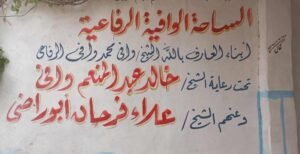 الساحة الوافية الرفاعية
أبناء العارف بالله الشيخ/ وافى محمد وافى الرفاعى
تحت رعاية الشيخ/ خالد عبد المنعم وافى
وعنهم الشيخ/ علاء فرحان أبوراضى